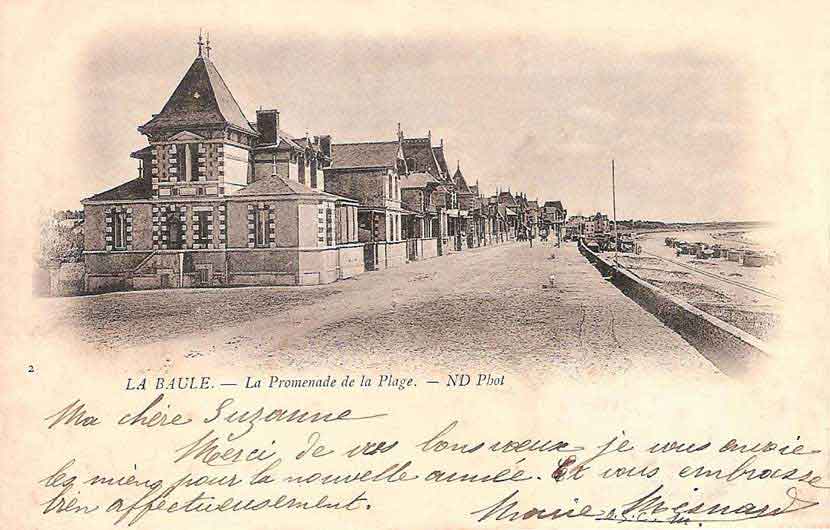 2
LA BAULE. — La Promenade de la Plage. — ND Phot
Ma chère Suzanne
Merci de vos bons vœux je vous envoie
les miens pour la nouvelle année. Et vous embrasse
bien affectueusement.
Marie Mesnard